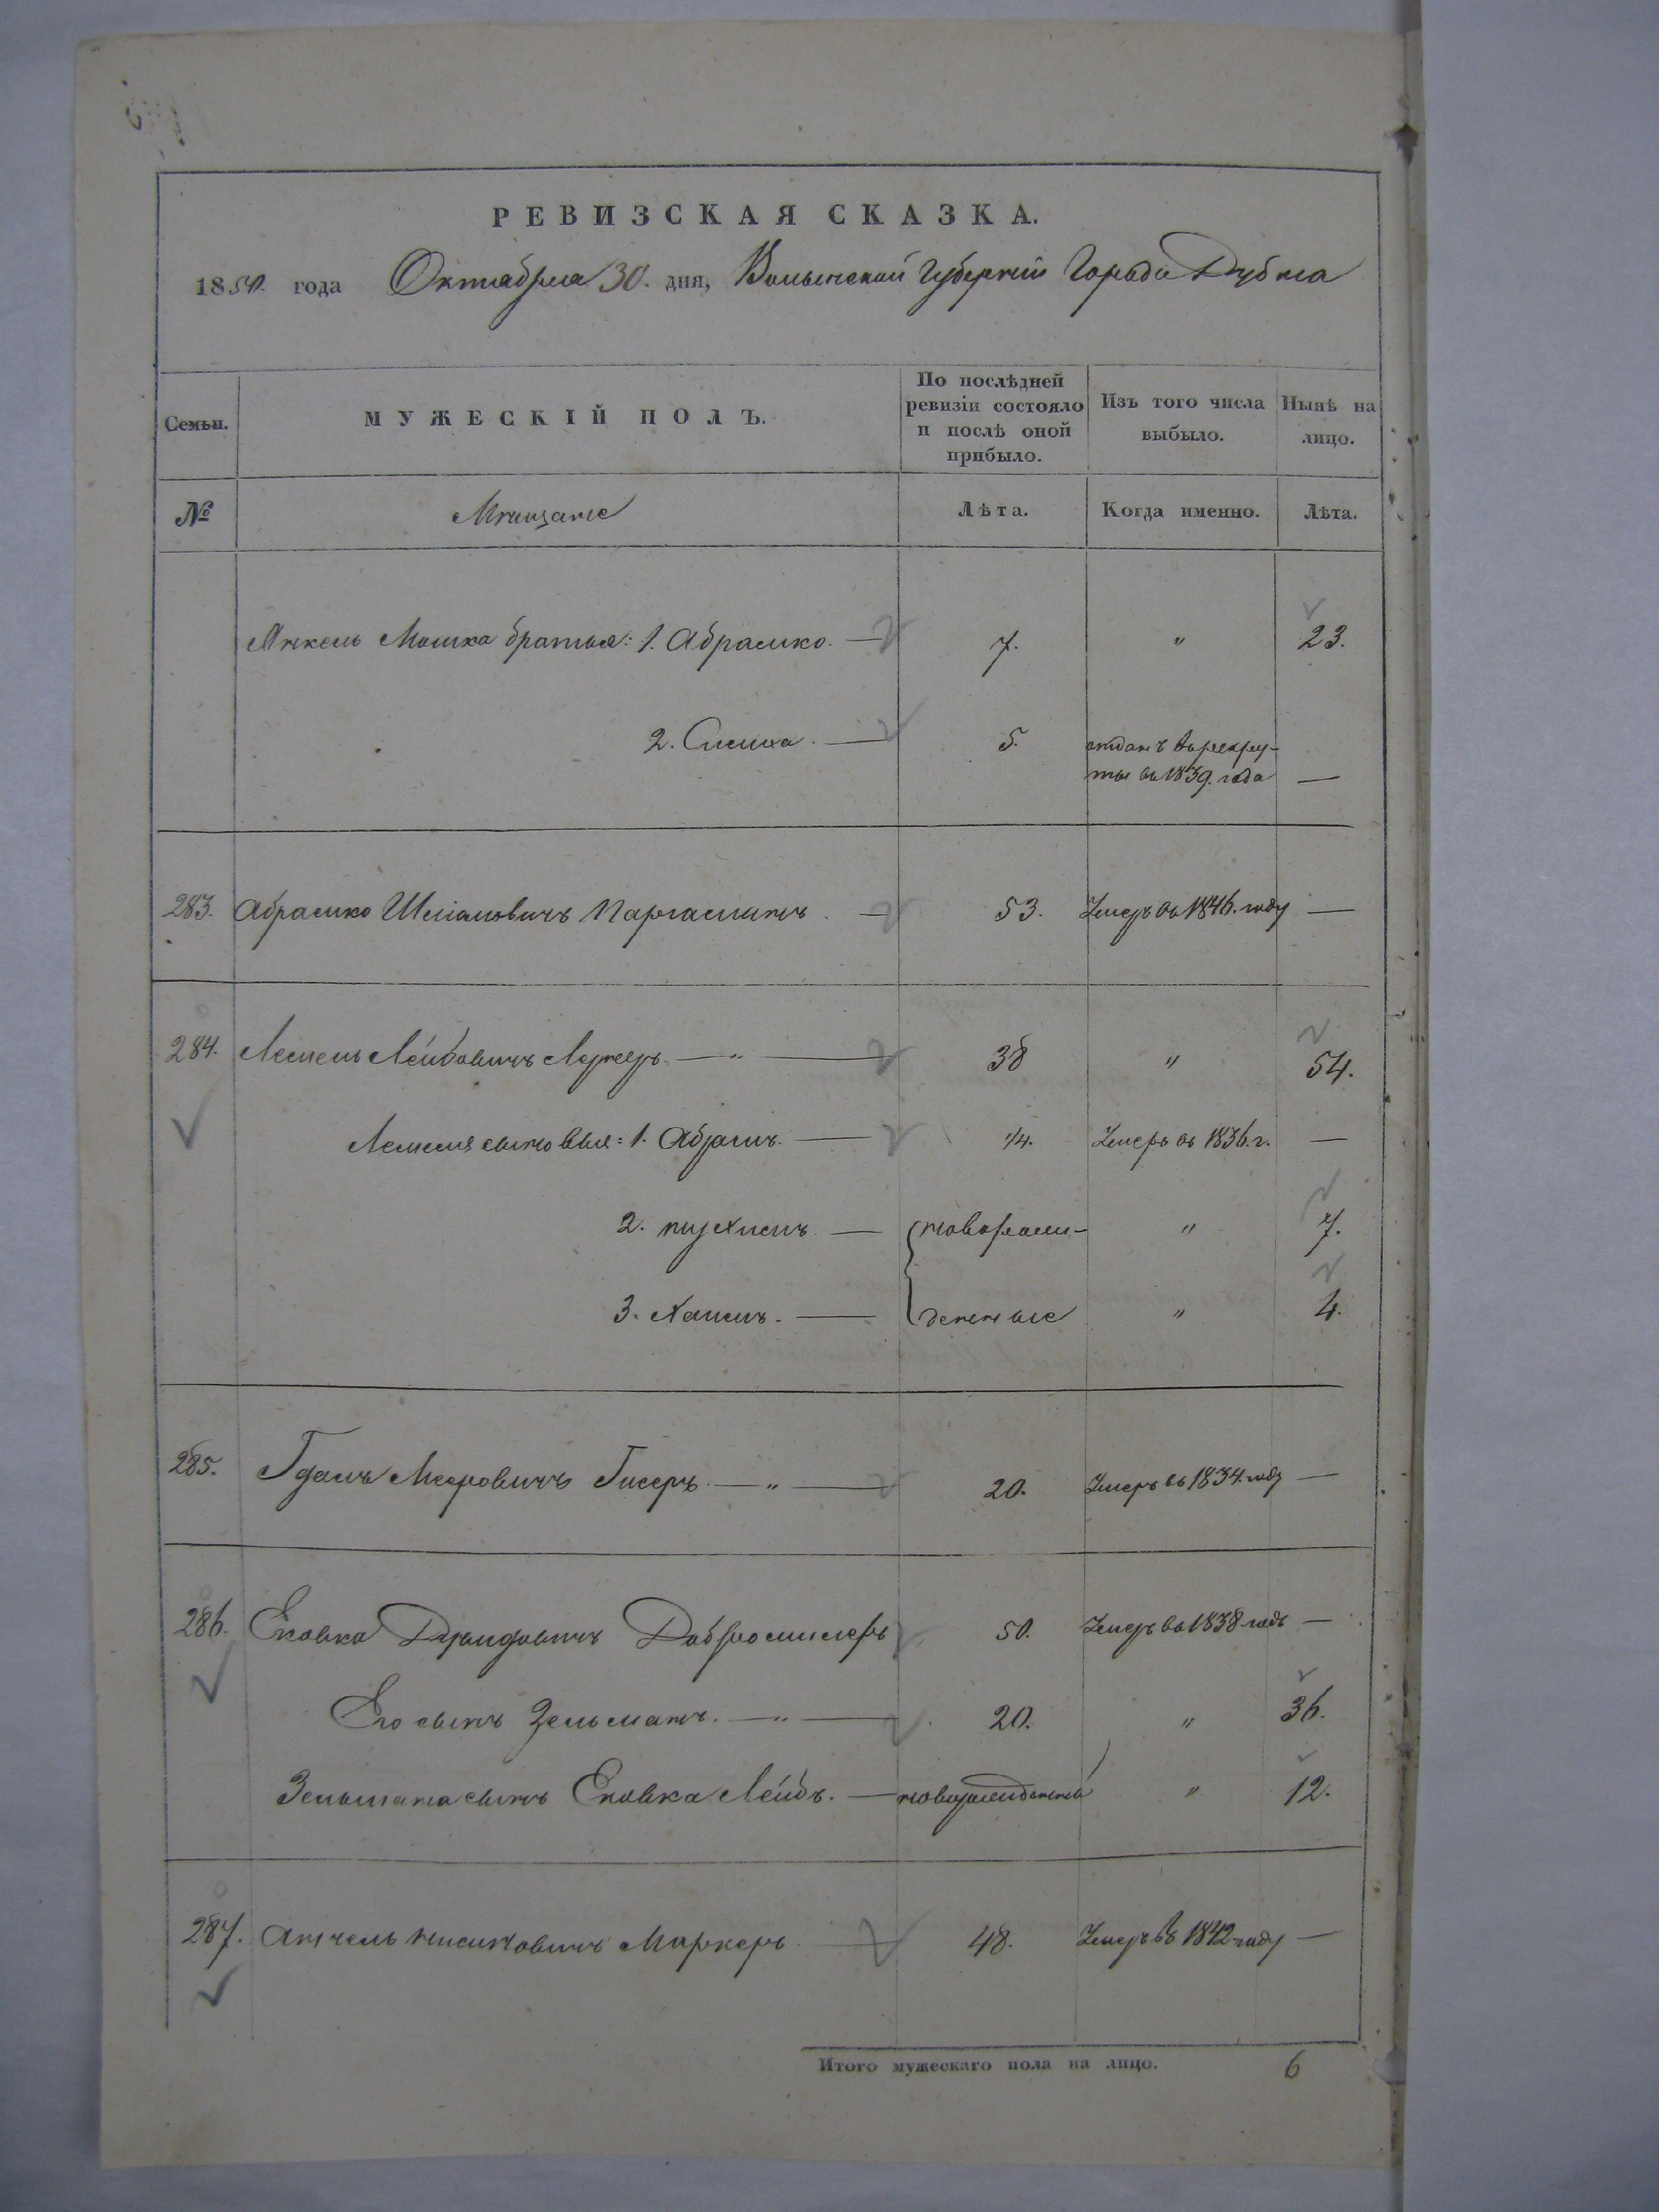 РЕВИЗСКАЯ СКАЗКА.
1850. года Октября 30. дня, Волынской Губернии Города Дубна
Семьи. МУЖЕСКІЙ ПОЛЪ. По послѣдней ревизіи состояло и послѣ оной прибыло. Изъ того числа выбыло. Нынѣ на лицо.
№ Мещане Лѣта. Когда именно. Лѣта.
Янкель Мошка братья: 1. Абрамко. — 7. " 23.
2. — 5. отданъ въ рекру-
ты въ 1839. года —
283. Абрамко — 53. Умеръ въ 1846. году —
284. Лемель Лейбовичъ — " — 38 " 54.
Лемеля сыновья: 1. Абрамъ. — 14. Умеръ въ 1836. г. —
2. — новорож- " 7.
3. Хаимъ. — денные " 4.
285. Мееровичъ Гисеръ — " — 20. Умеръ въ 1834. году —
286. Ековка 50. Умеръ въ 1838 годѣ —
Его сынъ Зельманъ. — " — 20. " 36.
Зельмана сынъ Ековка Лейбъ. — новорожденный " 12.
287. Анчель Нисиновичъ Маркеръ — 48. Умеръ въ 1842 году —
Итого мужескаго пола на лицо. 6